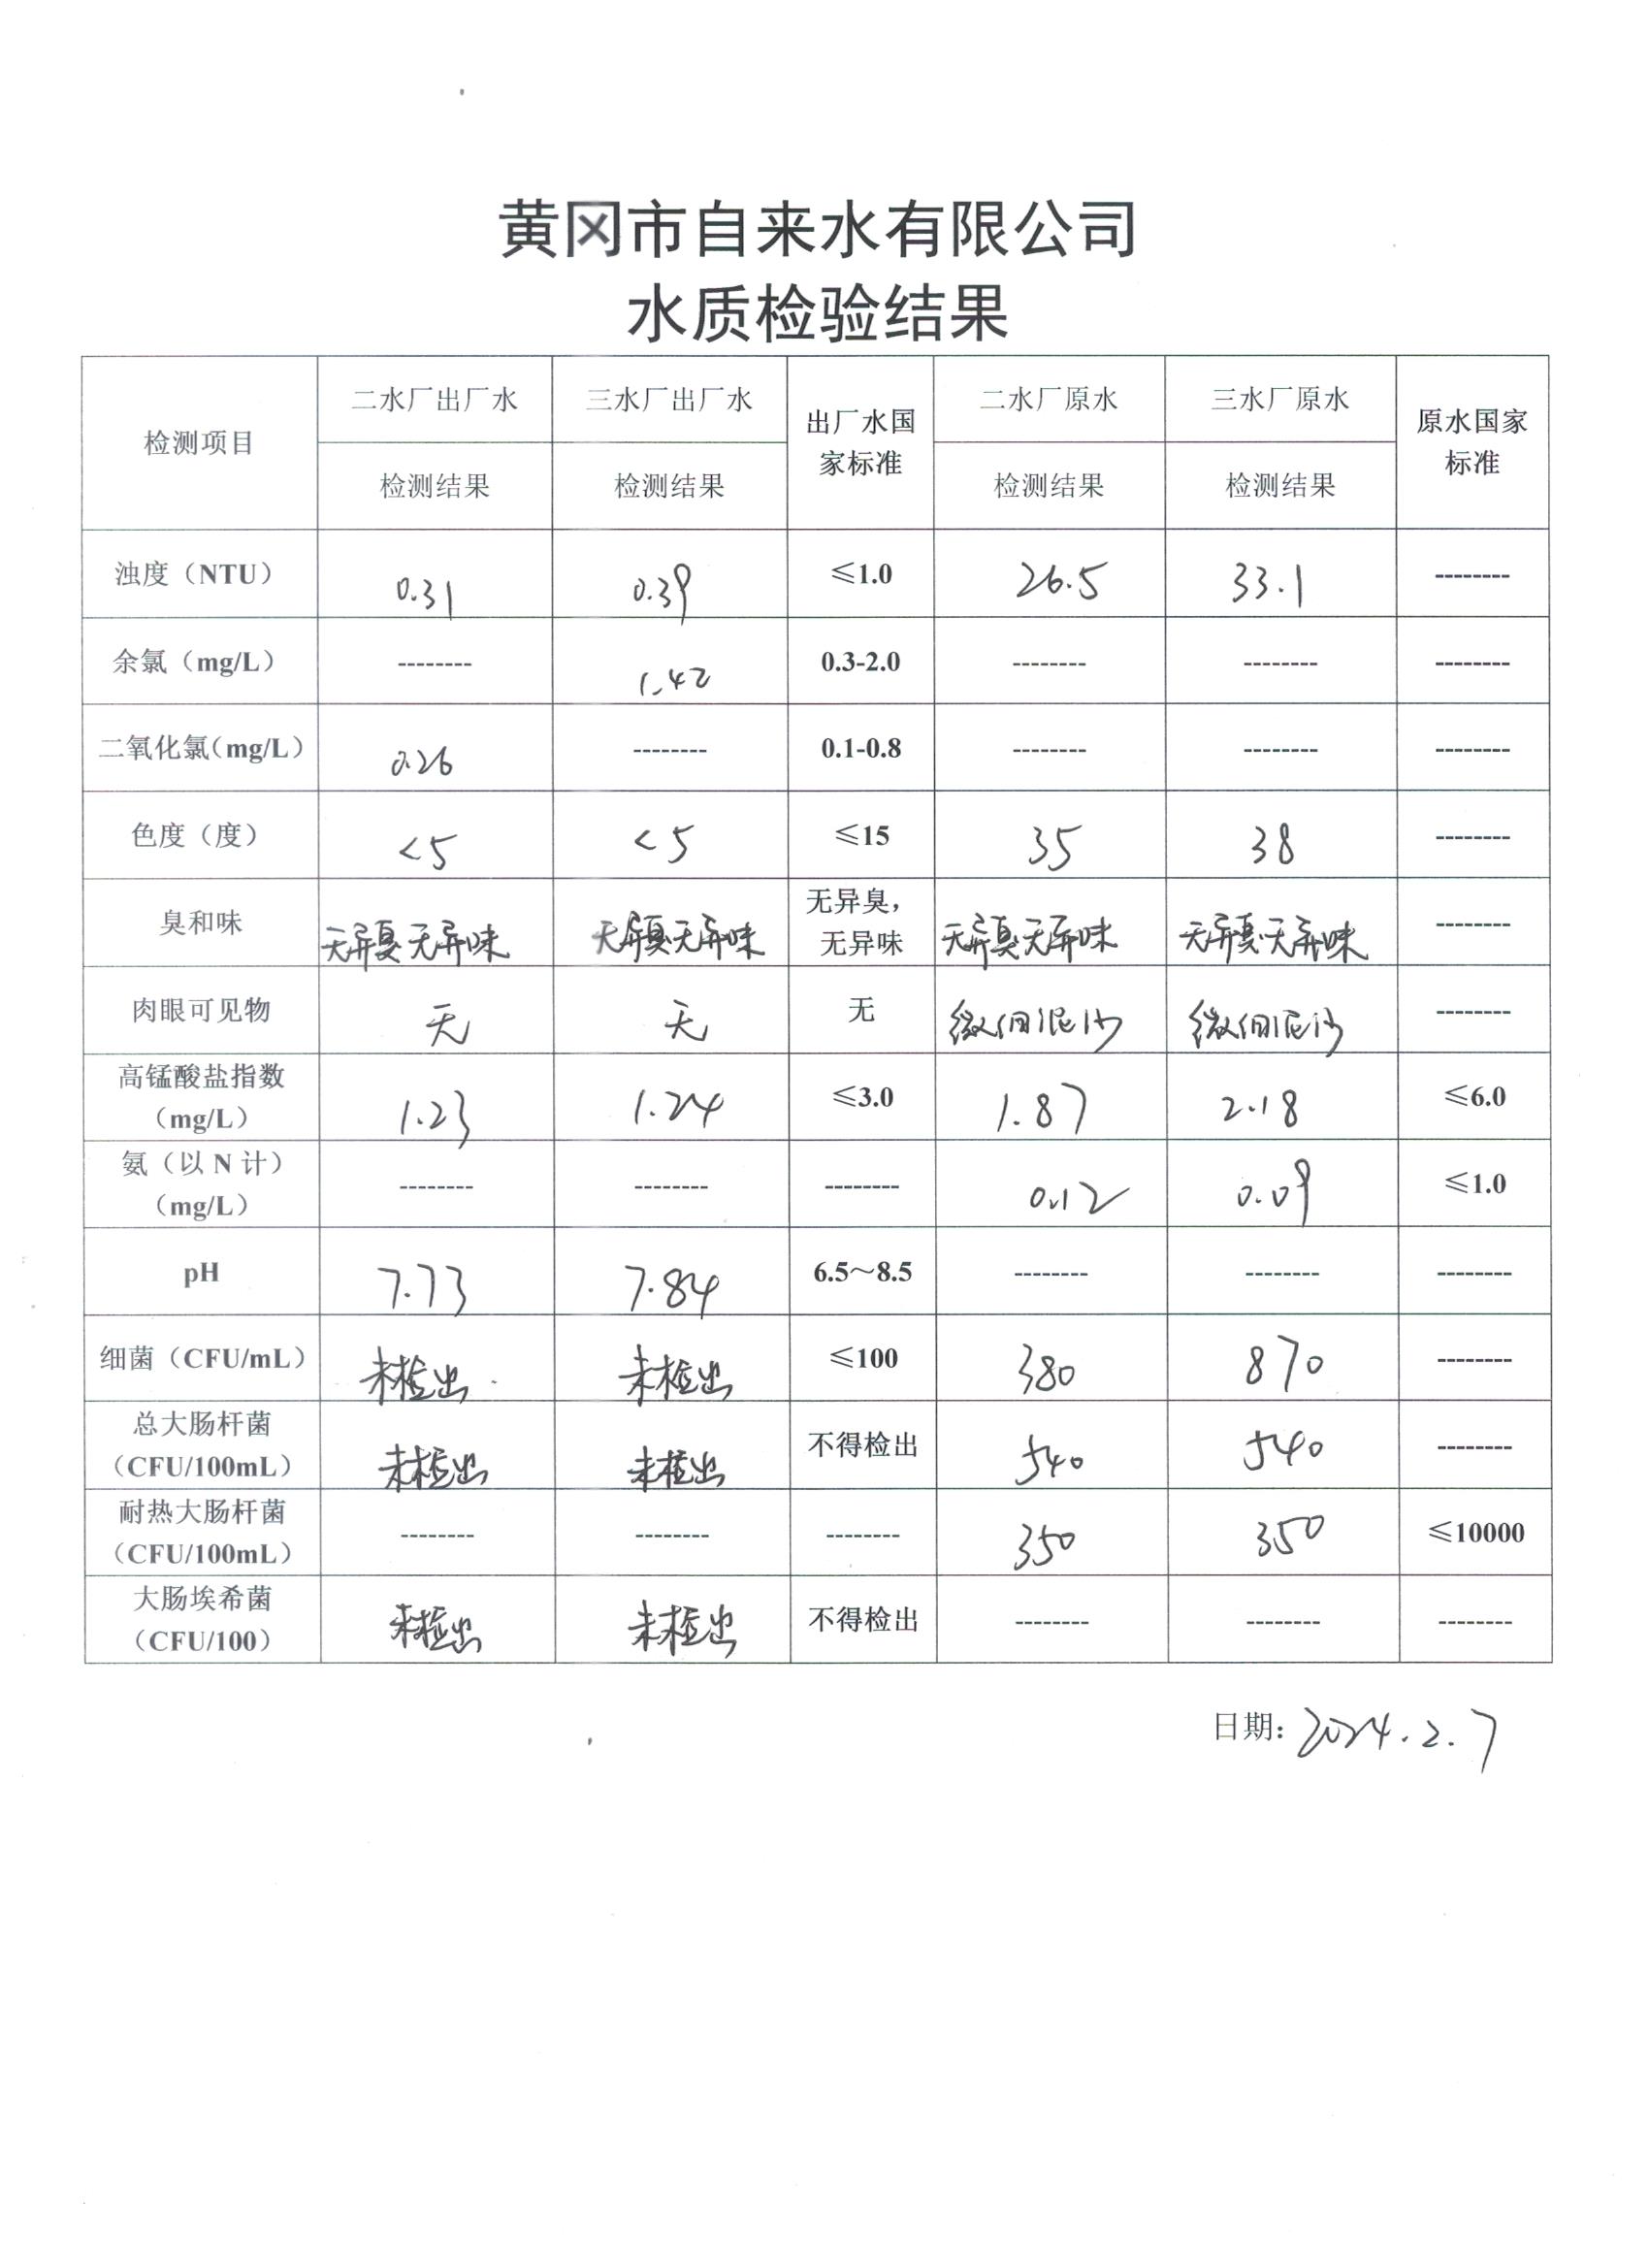 黄冈市自来水有限公司
水质检验结果
检测项目 二水厂出厂水 三水厂出厂水 出厂水国家标准 二水厂原水 三水厂原水 原水国家标准
检测结果 检测结果 检测结果 检测结果
浊度（NTU） 0.31 0.39 ≤1.0 26.5 33.1 --------
余氯（mg/L） -------- 1.42 0.3-2.0 -------- -------- --------
二氧化氯（mg/L） 0.26 -------- 0.1-0.8 -------- -------- --------
色度（度） <5 <5 ≤15 35 38 --------
臭和味 无异臭.无异味 无异臭无异味 无异臭，无异味 无异臭.无异味 无异臭.无异味 --------
肉眼可见物 无 无 无 微细泥沙 微细泥沙 --------
高锰酸盐指数（mg/L） 1.23 1.24 ≤3.0 1.87 2.18 ≤6.0
氨（以 N 计）（mg/L） -------- -------- -------- 0.12 0.09 ≤1.0
pH 7.73 7.84 6.5～8.5 -------- -------- --------
细菌（CFU/mL） 未检出 未检出 ≤100 380 870 --------
总大肠杆菌（CFU/100mL） 未检出 未检出 不得检出 540 540 --------
耐热大肠杆菌（CFU/100mL） -------- -------- -------- 350 350 ≤10000
大肠埃希菌（CFU/100） 未检出 未检出 不得检出 -------- -------- --------
日期: 2024.2.7